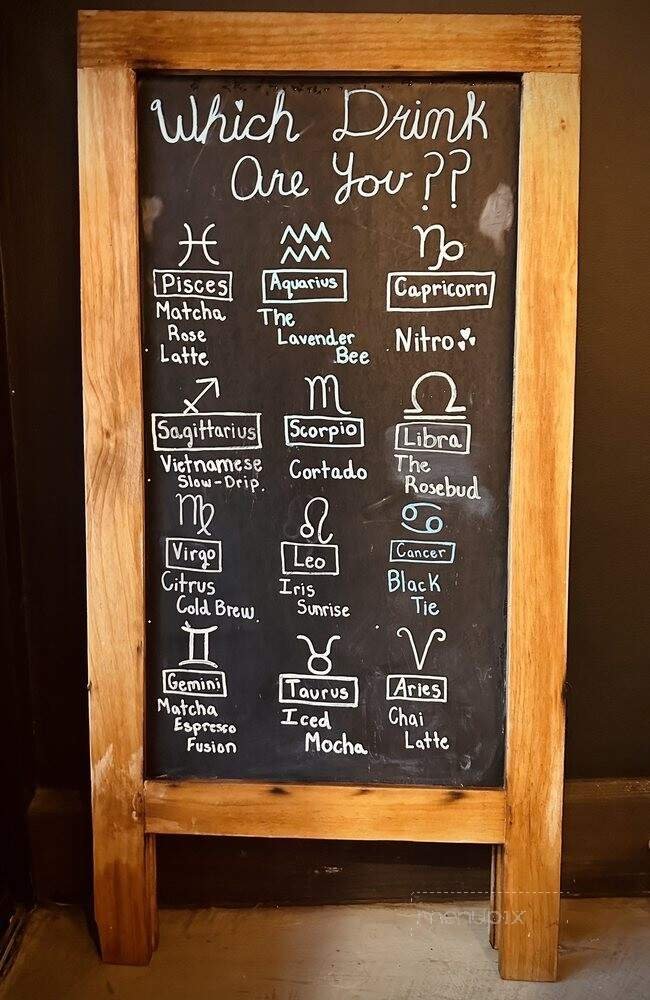 Which Drink
Are You??
Pisces
Matcha
Rose
Latte
Aquarius
The
Lavender
Bee
Capricorn
Nitro
Sagittarius
Vietnamese
Slow-Drip.
Scorpio
Cortado
Libra
The
Rosebud
Virgo
Citrus
Cold Brew.
Leo
Iris
Sunrise
Cancer
Black
Tie
Gemini
Matcha
Espresso
Fusion
Taurus
Iced
Mocha
Aries
Chai
Latte
menupix